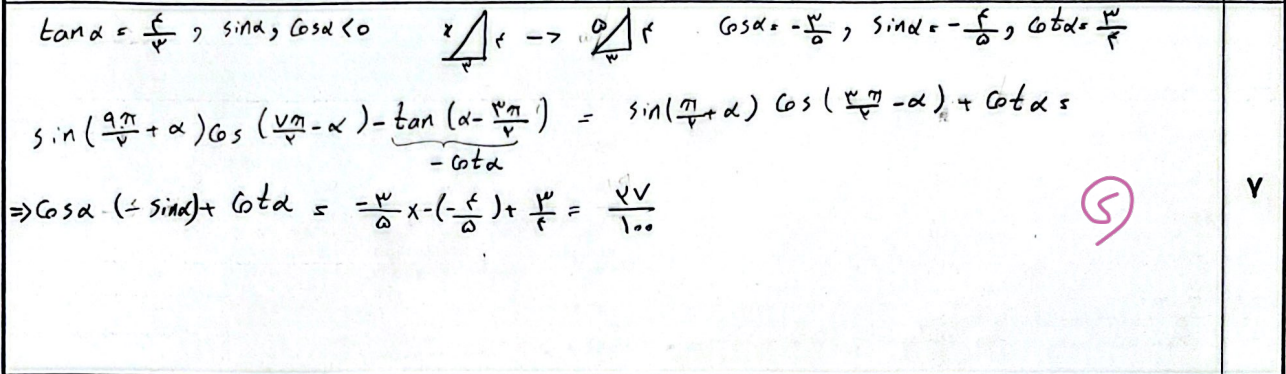 tanα = ۴/۳ , sinα, cosα < 0 x ۴ ۳ -> ۵ ۴ ۳ cosα = -۳/۵ , sinα = -۴/۵ , cotα = ۳/۴
sin(۹π/۲ + α)cos(۷π/۲ - α) - tan(α - ۳π/۲) = sin(π/۲ + α) cos(۳π/۲ - α) + cotα =
- cotα
⇒ cosα (- sinα) + cotα = -۳/۵ × -(-۴/۵) + ۳/۴ = ۲۷/۱۰۰
۷